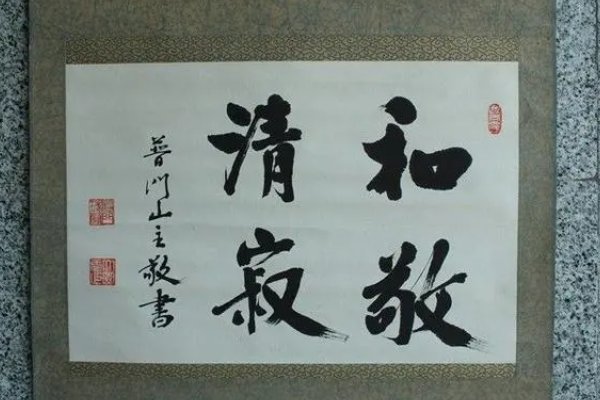 和敬
清寂
普門山主敬書